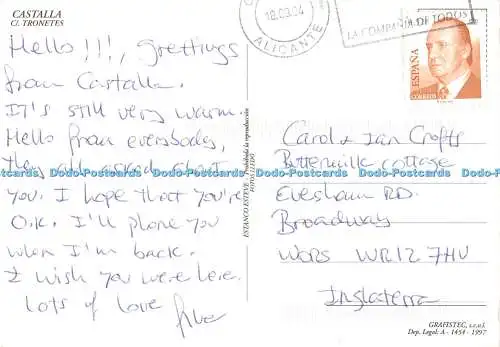 CASTALLA
C/. TRONETES
Hello!!!, grettings
from Castalla.
It's still very warm.
Hello from everybody,
they all asked about
you. I hope that you're
O.K. I'll phone you
when I'm back.
I wish you were here.
Lots of love
18.03.04
ALICANTE
LA COMPAÑIA DE TODOS
ESPAÑA
CORREOS
ESTANCO ESTEVE - Prohibida la reproducción
Carol & Ian Crofts
Buttermilk Cottage
Evesham RD.
Broadway
WORS WR12 7HU
Inglaterra
GRAFISTEC, s.c.v.l.
Dep. Legal: A - 1454 - 1997
Dodo-Postcards Dodo-Postcards Dodo-Postcards Dodo-Postcards